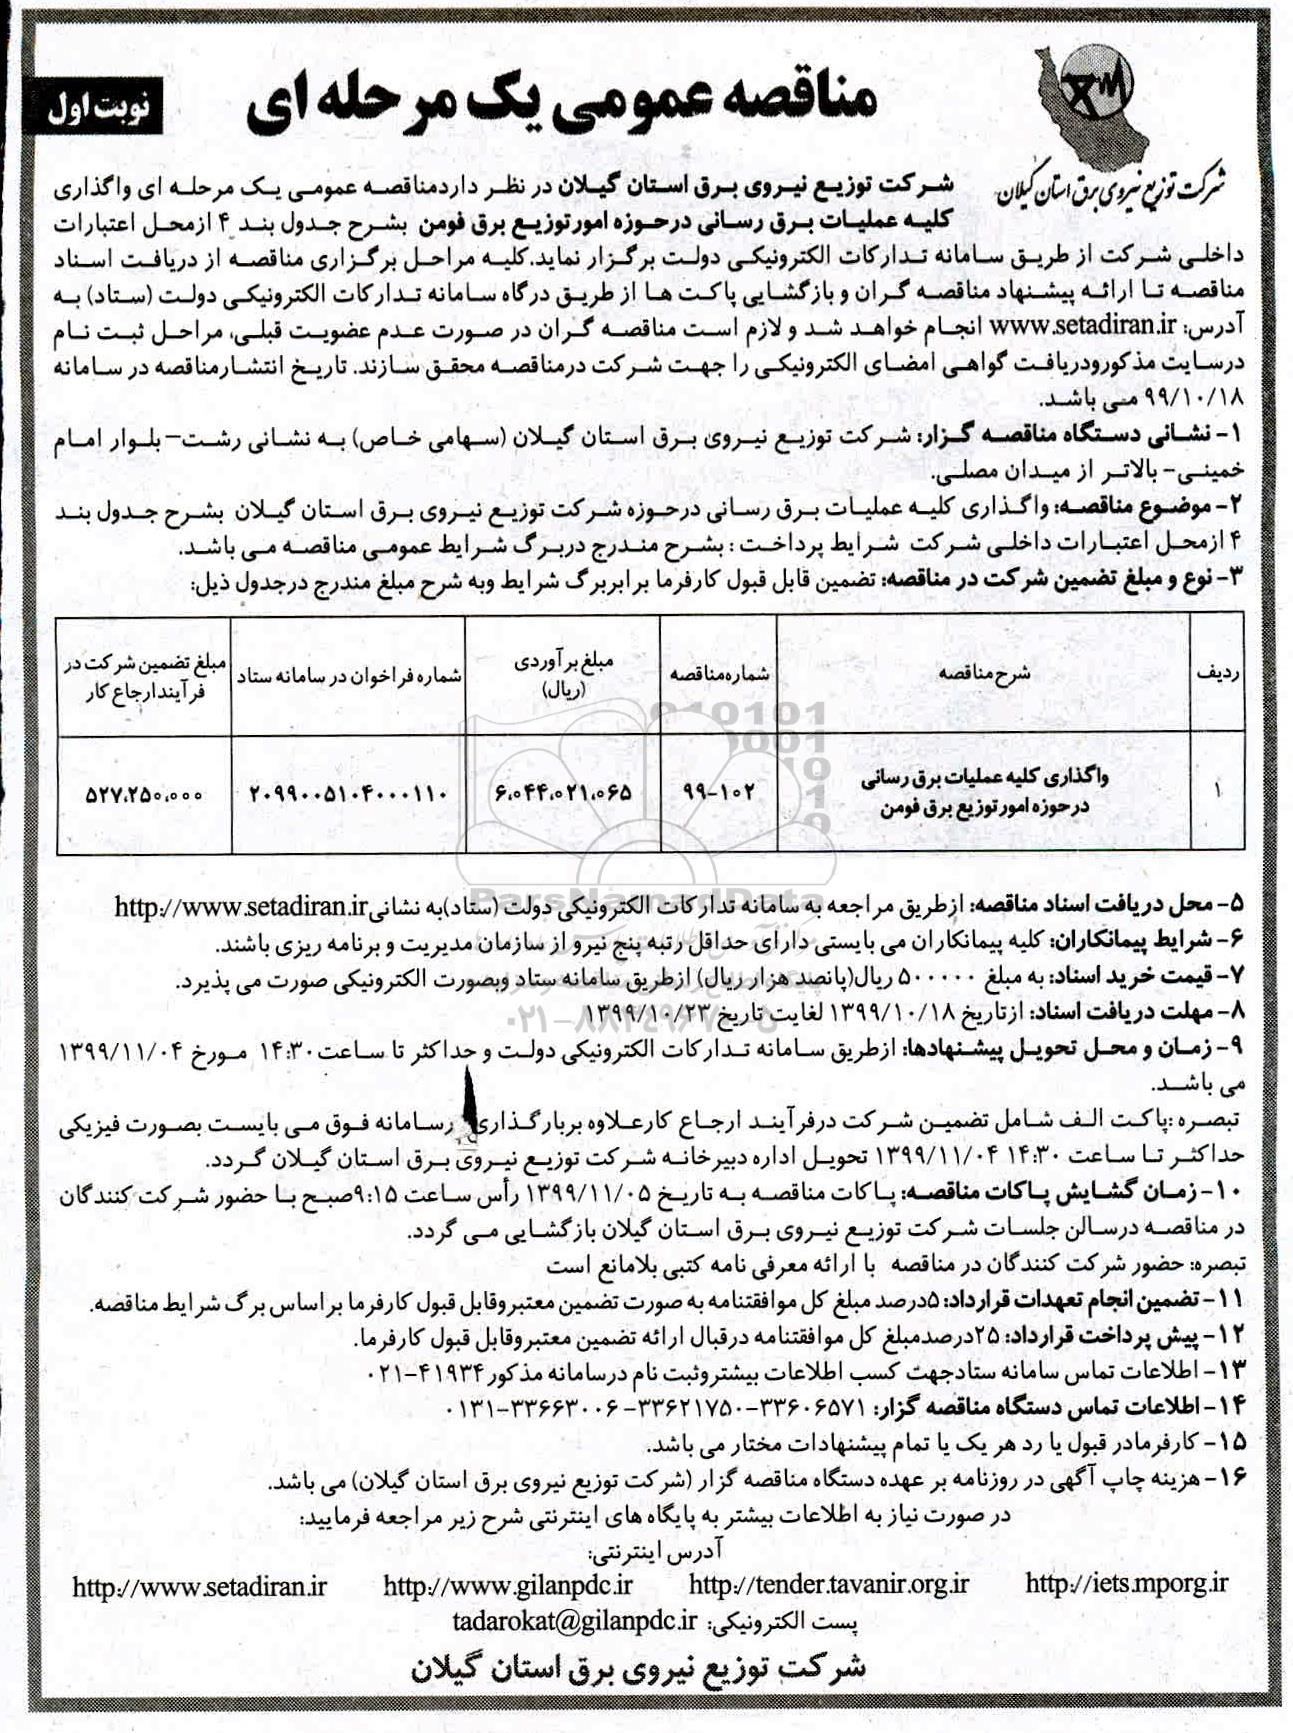 مناقصه عمومی یک مرحله ای
نوبت اول
شرکت توزیع نیروی برق استان گیلان
شرکت توزیع نیروی برق استان گیلان در نظر دارد مناقصه عمومی یک مرحله ای واگذاری
کلیه عملیات برق رسانی درحوزه امور توزیع برق فومن بشرح جدول بند ۴ ازمحل اعتبارات
داخلی شرکت از طریق سامانه تدارکات الکترونیکی دولت برگزار نماید.کلیه مراحل برگزاری مناقصه از دریافت اسناد
مناقصه تا ارائه پیشنهاد مناقصه گران و بازگشایی پاکت ها از طریق درگاه سامانه تدارکات الکترونیکی دولت (ستاد) به
آدرس: www.setadiran.ir انجام خواهد شد و لازم است مناقصه گران در صورت عدم عضویت قبلی، مراحل ثبت نام
درسایت مذکورودریافت گواهی امضای الکترونیکی را جهت شرکت درمناقصه محقق سازند. تاریخ انتشارمناقصه در سامانه
۹۹/۱۰/۱۸ می باشد.
۱- نشانی دستگاه مناقصه گزار: شرکت توزیع نیروی برق استان گیلان (سهامی خاص) به نشانی رشت- بلوار امام
خمینی- بالاتر از میدان مصلی.
۲- موضوع مناقصه: واگذاری کلیه عملیات برق رسانی درحوزه شرکت توزیع نیروی برق استان گیلان بشرح جدول بند
۴ ازمحل اعتبارات داخلی شرکت شرایط پرداخت : بشرح مندرج دربرگ شرایط عمومی مناقصه می باشد.
۳- نوع و مبلغ تضمین شرکت در مناقصه: تضمین قابل قبول کارفرما برابربرگ شرایط وبه شرح مبلغ مندرج درجدول ذیل:
ردیف شرح مناقصه شماره مناقصه مبلغ برآوردی (ریال) شماره فراخوان در سامانه ستاد مبلغ تضمین شرکت در فرآیند ارجاع کار
۱ واگذاری کلیه عملیات برق رسانی درحوزه امور توزیع برق فومن ۹۹-۱۰۲ ۶،۰۴۴،۰۲۱،۰۶۵ ۲۰۹۹۰۰۵۱۰۴۰۰۰۱۱۰ ۵۲۷،۲۵۰،۰۰۰
ParsNamadData
۰۲۱-۸۸۳۴۹۶۷۰-۵
۵- محل دریافت اسناد مناقصه: ازطریق مراجعه به سامانه تدارکات الکترونیکی دولت (ستاد)به نشانی http://www.setadiran.ir
۶- شرایط پیمانکاران: کلیه پیمانکاران می بایستی دارای حداقل رتبه پنج نیرو از سازمان مدیریت و برنامه ریزی باشند.
۷- قیمت خرید اسناد: به مبلغ ۵۰۰۰۰۰ ریال(پانصد هزار ریال) ازطریق سامانه ستاد وبصورت الکترونیکی صورت می پذیرد.
۸- مهلت دریافت اسناد: ازتاریخ ۱۳۹۹/۱۰/۱۸ لغایت تاریخ ۱۳۹۹/۱۰/۲۳
۹- زمان و محل تحویل پیشنهادها: ازطریق سامانه تدارکات الکترونیکی دولت و حداکثر تا ساعت ۱۴:۳۰ مورخ ۱۳۹۹/۱۱/۰۴
می باشد.
تبصره :پاکت الف شامل تضمین شرکت درفرآیند ارجاع کارعلاوه بربارگذاری رسامانه فوق می بایست بصورت فیزیکی
حداکثر تا ساعت ۱۴:۳۰ ۱۳۹۹/۱۱/۰۴ تحویل اداره دبیرخانه شرکت توزیع نیروی برق استان گیلان گردد.
۱۰- زمان گشایش پاکات مناقصه: پاکات مناقصه به تاریخ ۱۳۹۹/۱۱/۰۵ رأس ساعت ۹:۱۵صبح با حضور شرکت کنندگان
در مناقصه درسالن جلسات شرکت توزیع نیروی برق استان گیلان بازگشایی می گردد.
تبصره: حضور شرکت کنندگان در مناقصه با ارائه معرفی نامه کتبی بلامانع است
۱۱- تضمین انجام تعهدات قرارداد: ۵درصد مبلغ کل موافقتنامه به صورت تضمین معتبروقابل قبول کارفرما براساس برگ شرایط مناقصه.
۱۲- پیش پرداخت قرارداد: ۲۵درصدمبلغ کل موافقتنامه درقبال ارائه تضمین معتبروقابل قبول کارفرما.
۱۳- اطلاعات تماس سامانه ستادجهت کسب اطلاعات بیشتروثبت نام درسامانه مذکور ۴۱۹۳۴-۰۲۱
۱۴- اطلاعات تماس دستگاه مناقصه گزار: ۳۳۶۰۶۵۷۱-۳۳۶۲۱۷۵۰-۳۳۶۶۳۰۰۶-۰۱۳۱
۱۵- کارفرمادر قبول یا رد هر یک یا تمام پیشنهادات مختار می باشد.
۱۶- هزینه چاپ آگهی در روزنامه بر عهده دستگاه مناقصه گزار (شرکت توزیع نیروی برق استان گیلان) می باشد.
در صورت نیاز به اطلاعات بیشتر به پایگاه های اینترنتی شرح زیر مراجعه فرمایید:
آدرس اینترنتی:
http://www.setadiran.ir http://www.gilanpdc.ir http://tender.tavanir.org.ir http://iets.mporg.ir
پست الکترونیکی: tadarokat@gilanpdc.ir
شرکت توزیع نیروی برق استان گیلان